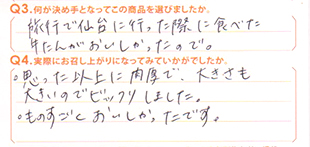 Q3.何が決め手となってこの商品を選びましたか。
旅行で仙台に行った際に食べた
牛たんがおいしかったので。
Q4.実際にお召し上がりになってみていかがでしたか。
○思った以上に肉厚で、大きさも
大きいのでビックリしました。
○ものすごくおいしかったです。